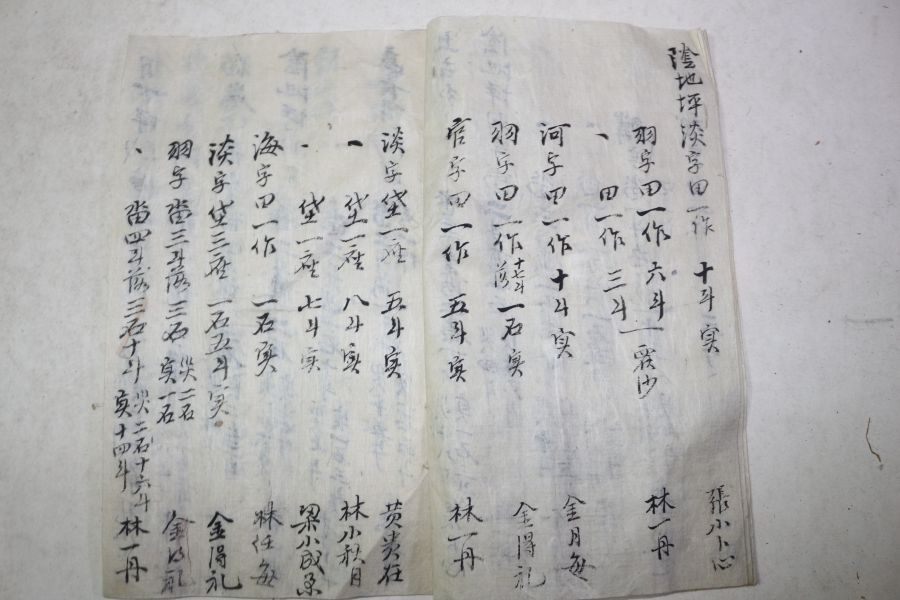 陰地坪淡字田一作 十斗実 張小卜心
羽字田一作 六斗 覆沙 林一丹
、 田一作 三斗
河字田一作 十斗実 金月每
羽字田一作 十七斗落 一石実 金得礼
官字田一作 五斗実 林一丹
淡字垈一座 五斗実 黄貴在
、 垈一座 八斗実 林小秋月
、 垈一座 七斗実 梁小成
海字田一作 一石実 林任每
淡字垈三座 一石五斗実 金得礼
羽字畓三斗落 三石 災二石 実一石 金得礼
、 畓四斗落 三石十斗 災二石十六斗 実十四斗 林一丹